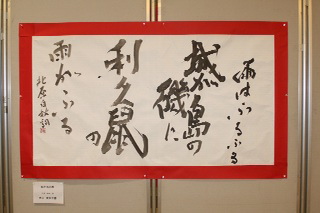 雨はふるふる
城ヶ島の
磯に
利久鼠の
雨がふる
北原白秋詩